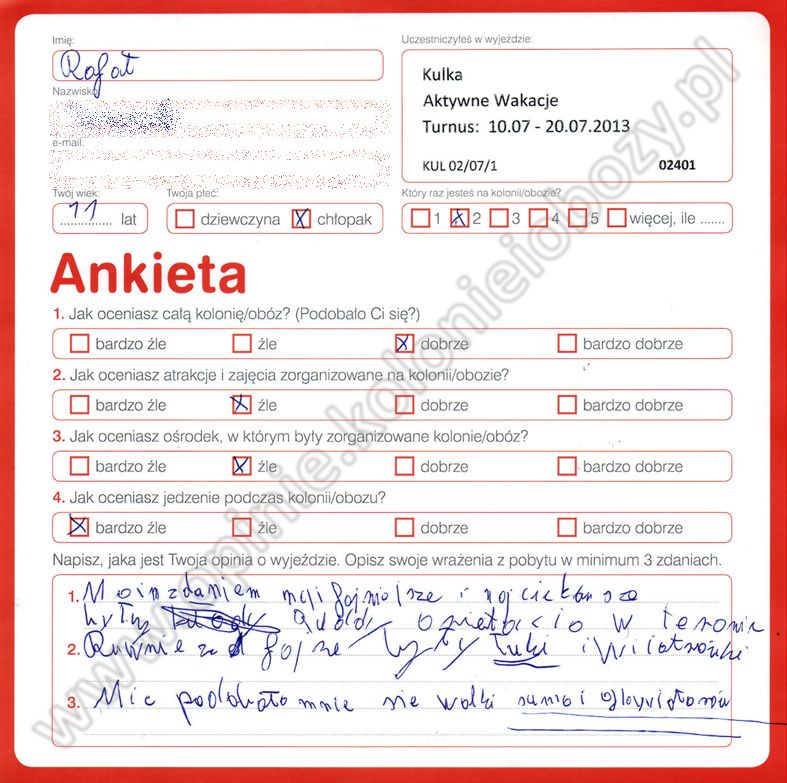 Imię:
Rafał
Nazwisko
e-mail:
Twój wiek:
11 lat
Twoja płeć:
dziewczyna X chłopak
Uczestniczyłeś w wyjeździe:
Kulka
Aktywne Wakacje
Turnus: 10.07 - 20.07.2013
KUL 02/07/1 02401
Który raz jesteś na kolonii/obozie?
1 X 2 3 4 5 więcej, ile .......
Ankieta
1. Jak oceniasz całą kolonię/obóz? (Podobało Ci się?)
bardzo źle źle X dobrze bardzo dobrze
2. Jak oceniasz atrakcje i zajęcia zorganizowane na kolonii/obozie?
bardzo źle X źle dobrze bardzo dobrze
3. Jak oceniasz ośrodek, w którym były zorganizowane kolonie/obóz?
bardzo źle X źle dobrze bardzo dobrze
4. Jak oceniasz jedzenie podczas kolonii/obozu?
X bardzo źle źle dobrze bardzo dobrze
Napisz, jaka jest Twoja opinia o wyjeździe. Opisz swoje wrażenia z pobytu w minimum 3 zdaniach.
1. Moim zdaniem i
były w terenie
2. były łuki i wiatrówki
3. Nie podobało mnie sie walki sumo i
www.opinie.kolonieiobozy.pl